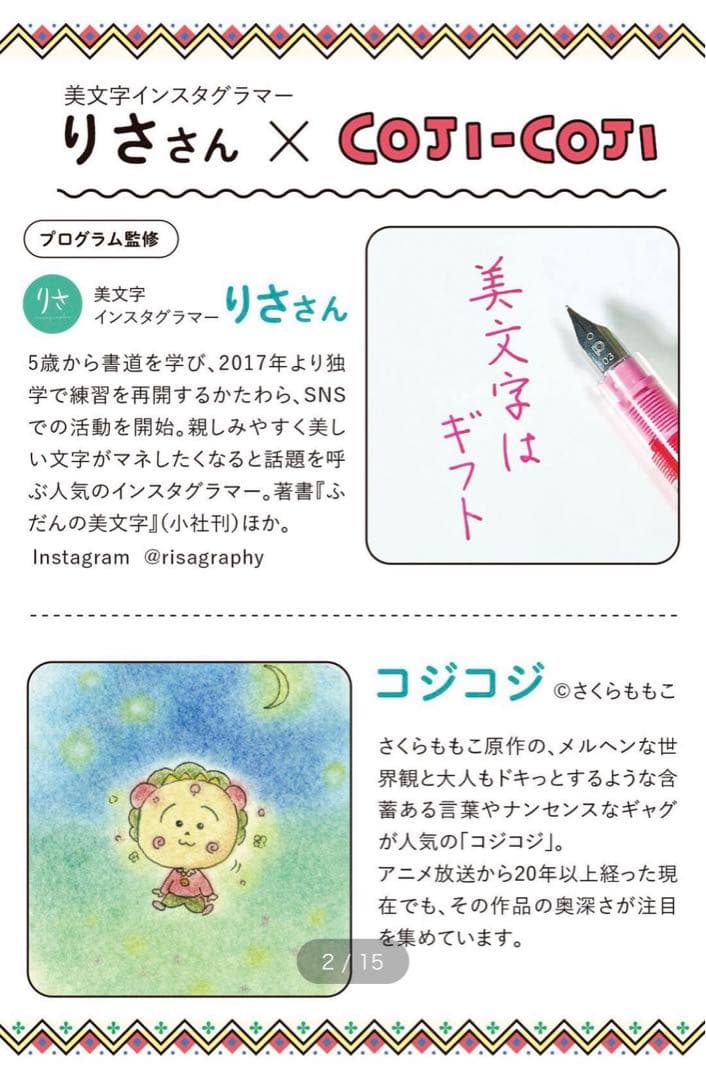 美文字インスタグラマー
りささん × COJI-COJI
プログラム監修
りさ
美文字
インスタグラマー りささん
5歳から書道を学び、2017年より独
学で練習を再開するかたわら、SNS
での活動を開始。親しみやすく美し
い文字がマネしたくなると話題を呼
ぶ人気のインスタグラマー。著書『ふ
だんの美文字』(小社刊)ほか。
Instagram @risagraphy
美文字は
ギフト
03
コジコジ ©さくらももこ
さくらももこ原作の、メルヘンな世
界観と大人もドキっとするような含
蓄ある言葉やナンセンスなギャグ
が人気の「コジコジ」。
アニメ放送から20年以上経った現
在でも、その作品の奥深さが注目
を集めています。
2 / 15